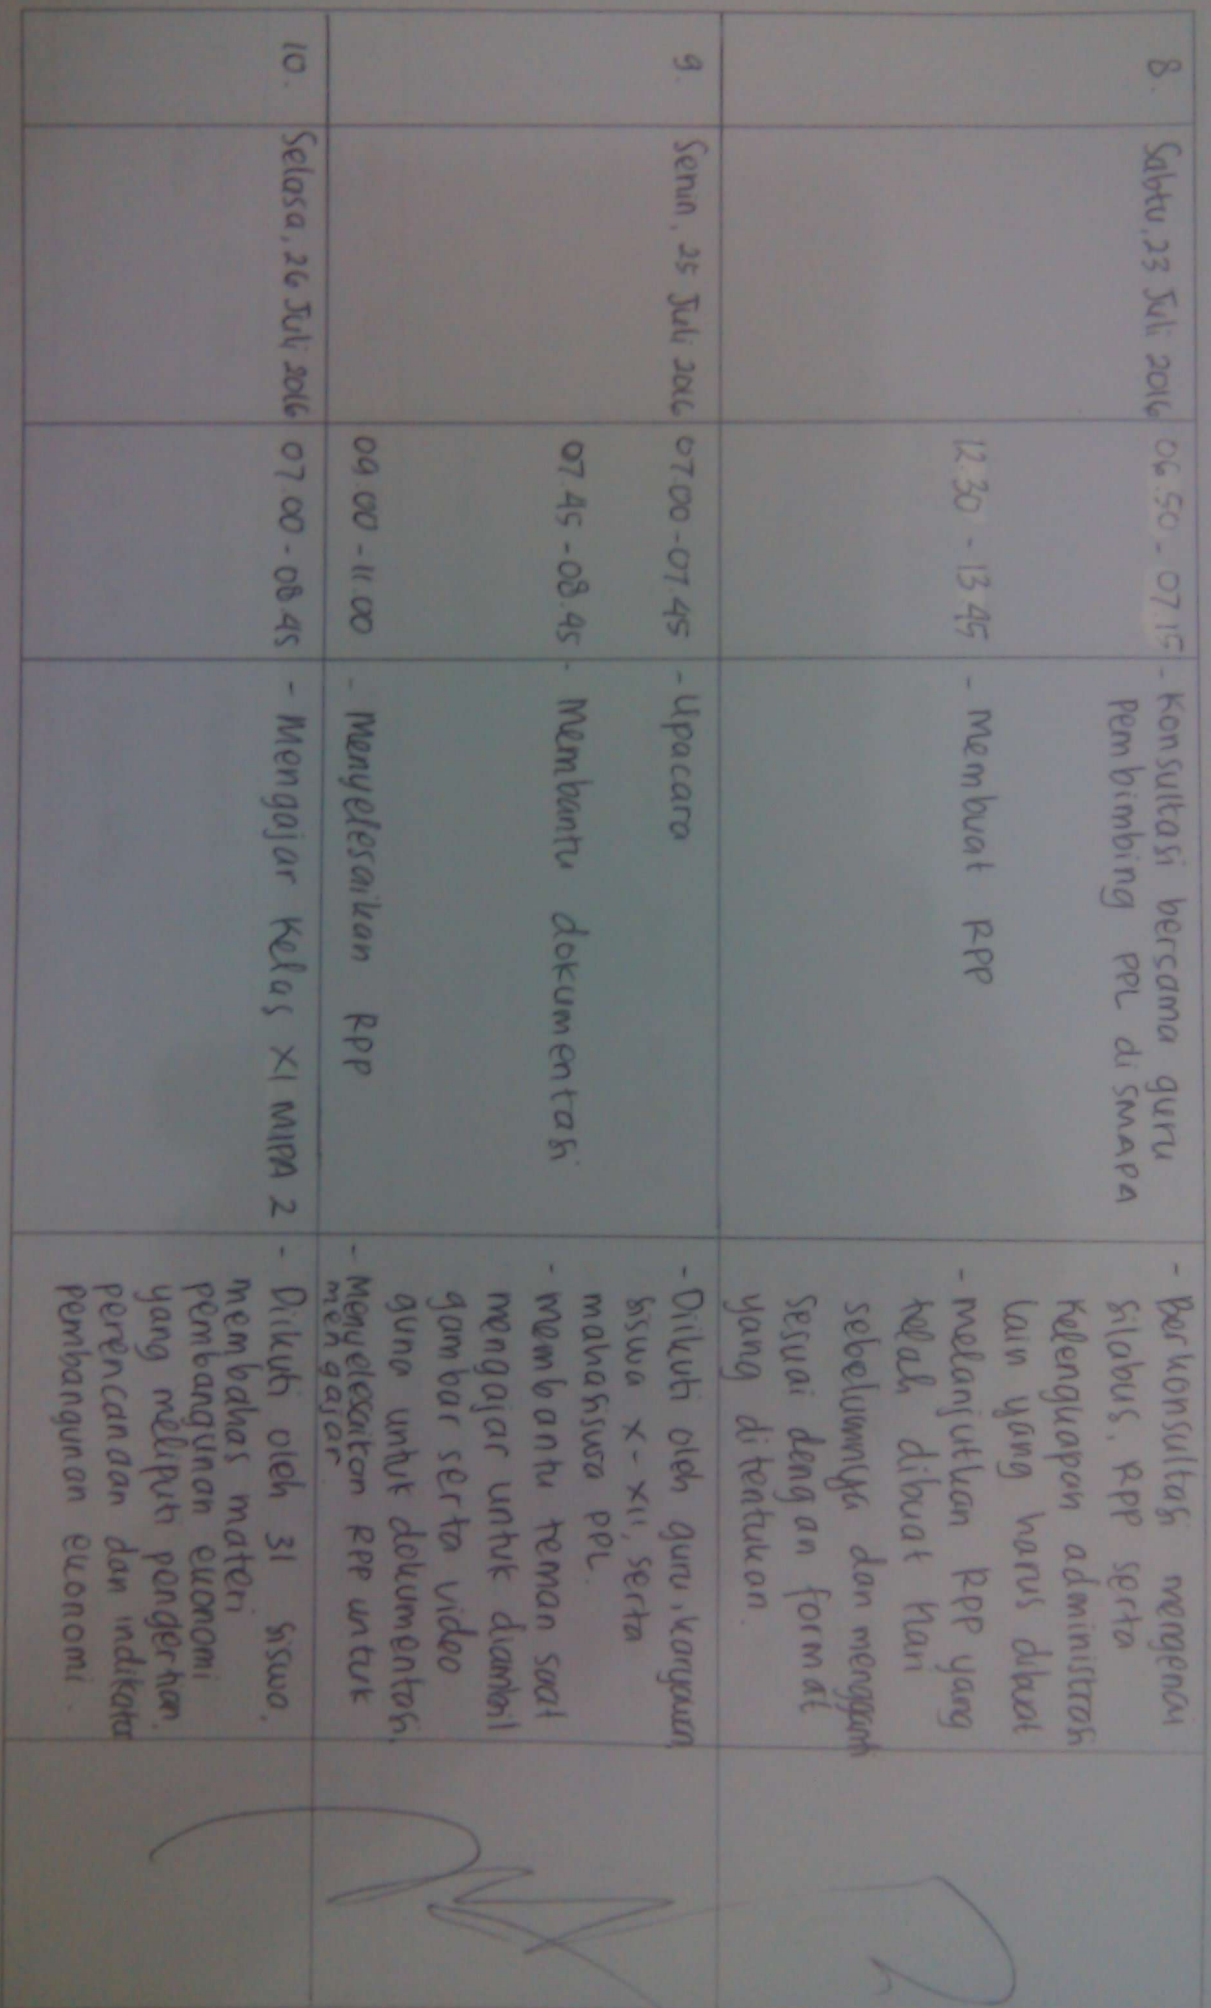 8. Sabtu, 23 Juli 2016 06.50 - 07.15 - Konsultasi bersama guru - Berkonsultasi mengenai
Pembimbing PPL di SMAPA silabus, RPP serta
Kelengkapan administrasi
lain yang harus dibuat
12.30 - 13.45 - Membuat RPP - Melanjutkan RPP yang
telah dibuat hari
sebelumnya dan mengganti
sesuai dengan format
yang ditentukan.
9. Senin, 25 Juli 2016 07.00 - 07.45 - Upacara - Diikuti oleh guru, karyawan,
siswa X - XII, serta
mahasiswa PPL.
07.45 - 08.45 - Membantu dokumentasi - Membantu teman saat
mengajar untuk diambil
gambar serta video
guna untuk dokumentasi.
09.00 - 11.00 - Menyelesaikan RPP - Menyelesaikan RPP untuk
mengajar.
10. Selasa, 26 Juli 2016 07.00 - 08.45 - Mengajar Kelas XI MIPA 2 - Diikuti oleh 31 siswa,
membahas materi
pembangunan ekonomi
yang meliputi pengertian,
perencanaan dan indikator
pembangunan ekonomi.